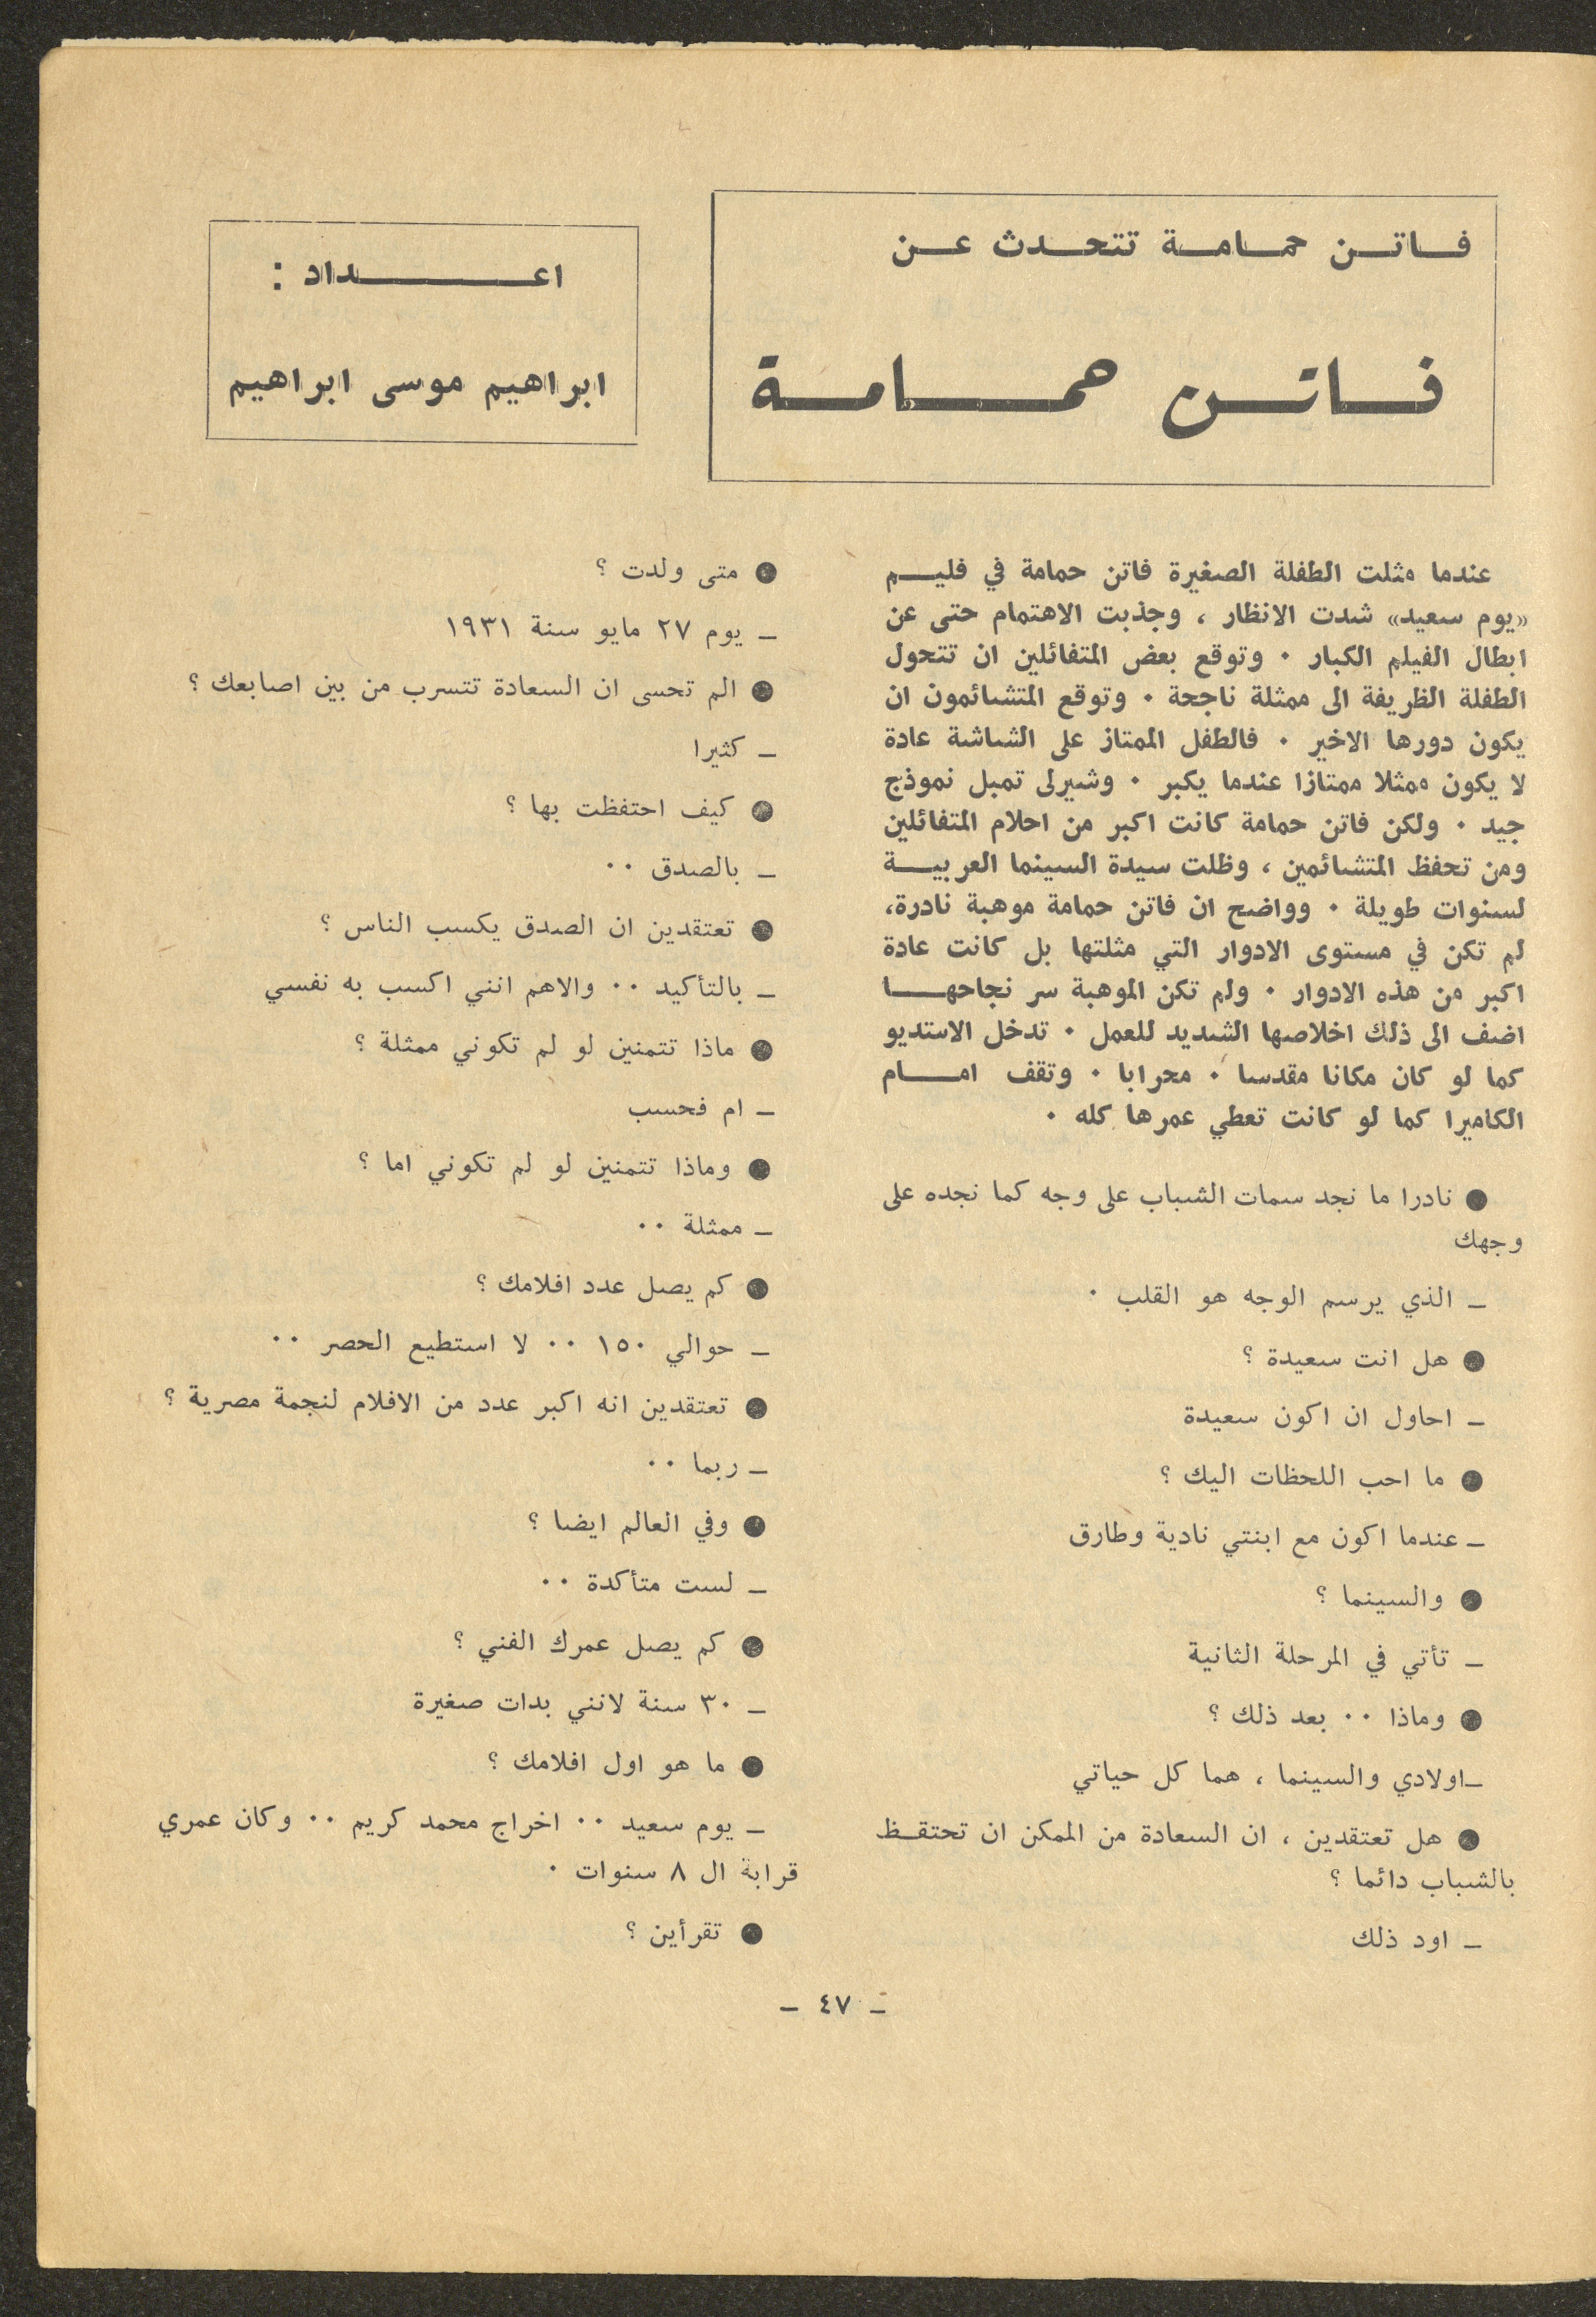 فاتن حمامة تتحدث عن
فاتن حمامة
اعداد :
ابراهيم موسى ابراهيم
عندما مثلت الطفلة الصغيرة فاتن حمامة في فليم
«يوم سعيد» شدت الانظار ، وجذبت الاهتمام حتى عن
ابطال الفيلم الكبار ٠ وتوقع بعض المتفائلين ان تتحول
الطفلة الظريفة الى ممثلة ناجحة ٠ وتوقع المتشائمون ان
يكون دورها الاخير ٠ فالطفل الممتاز على الشاشة عادة
لا يكون ممثلا ممتازا عندما يكبر ٠ وشيرلى تمبل نموذج
جيد ٠ ولكن فاتن حمامة كانت اكبر من احلام المتفائلين
ومن تحفظ المتشائمين ، وظلت سيدة السينما العربية
لسنوات طويلة ٠ وواضح ان فاتن حمامة موهبة نادرة،
لم تكن في مستوى الادوار التي مثلتها بل كانت عادة
اكبر من هذه الادوار ٠ ولم تكن الموهبة سر نجاحها
اضف الى ذلك اخلاصها الشديد للعمل ٠ تدخل الاستديو
كما لو كان مكانا مقدسا ٠ محرابا ٠ وتقف امام
الكاميرا كما لو كانت تعطي عمرها كله ٠
● نادرا ما نجد سمات الشباب على وجه كما نجده على
وجهك
ـ الذي يرسم الوجه هو القلب ٠
● هل انت سعيدة ؟
ـ احاول ان اكون سعيدة
● ما احب اللحظات اليك ؟
ـ عندما اكون مع ابنتي نادية وطارق
● والسينما ؟
ـ تأتي في المرحلة الثانية
● وماذا ٠٠ بعد ذلك ؟
ـاولادي والسينما ، هما كل حياتي
● هل تعتقدين ، ان السعادة من الممكن ان تحتقظ
بالشباب دائما ؟
ـ اود ذلك
● متى ولدت ؟
ـ يوم ٢٧ مايو سنة ١٩٣١
● الم تحسى ان السعادة تتسرب من بين اصابعك ؟
ـ كثيرا
● كيف احتفظت بها ؟
ـ بالصدق ٠٠
● تعتقدين ان الصدق يكسب الناس ؟
ـ بالتأكيد ٠٠ والاهم انني اكسب به نفسي
● ماذا تتمنين لو لم تكوني ممثلة ؟
ـ ام فحسب
● وماذا تتمنين لو لم تكوني اما ؟
ـ ممثلة ٠٠
● كم يصل عدد افلامك ؟
ـ حوالي ١٥٠ ٠٠ لا استطيع الحصر ٠٠
● تعتقدين انه اكبر عدد من الافلام لنجمة مصرية ؟
ـ ربما ٠٠
● وفي العالم ايضا ؟
ـ لست متأكدة ٠٠
● كم يصل عمرك الفني ؟
ـ ٣٠ سنة لانني بدات صغيرة
● ما هو اول افلامك ؟
ـ يوم سعيد ٠٠ اخراج محمد كريم ٠٠ وكان عمري
قرابة ال ٨ سنوات ٠
● تقرأين ؟
ـ ٤٧ ـ